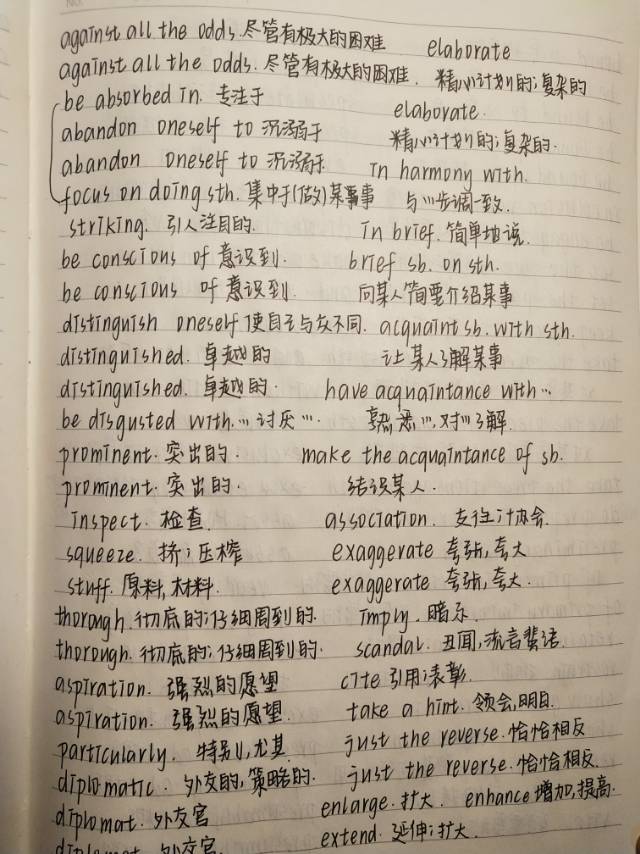 against all the odds. 尽管有极大的困难 elaborate
against all the odds. 尽管有极大的困难. 精心计划的;复杂的
be absorbed in. 专注于 elaborate.
abandon oneself to 沉溺于 精心计划的;复杂的.
abandon oneself to 沉溺于 in harmony with.
focus on doing sth. 集中于(做)某事 与…步调一致.
striking. 引人注目的. in brief. 简单地说.
be conscious of 意识到. brief sb. on sth.
be conscious of 意识到. 向某人简要介绍某事
distinguish oneself 使自己与众不同. acquaint sb. with sth.
distinguished. 卓越的 让某人了解某事
distinguished. 卓越的. have acquaintance with…
be disgusted with.… 讨厌…. 熟悉…,对…了解.
prominent. 突出的. make the acquaintance of sb.
prominent. 突出的. 结识某人.
inspect. 检查. association. 交往;协会.
squeeze. 挤;压榨 exaggerate 夸张,夸大
stuff. 原料,材料. exaggerate 夸张,夸大.
thorough. 彻底的;仔细周到的. imply. 暗示.
thorough. 彻底的;仔细周到的. scandal. 丑闻,流言蜚语.
aspiration. 强烈的愿望 cite 引用;表彰.
aspiration. 强烈的愿望. take a hint. 领会,明白.
particularly. 特别,尤其. just the reverse. 恰恰相反
diplomatic. 外交的,策略的. just the reverse. 恰恰相反.
diplomat. 外交官 enlarge. 扩大. enhance 增加,提高.
diplomat. 外交官. extend. 延伸;扩大.